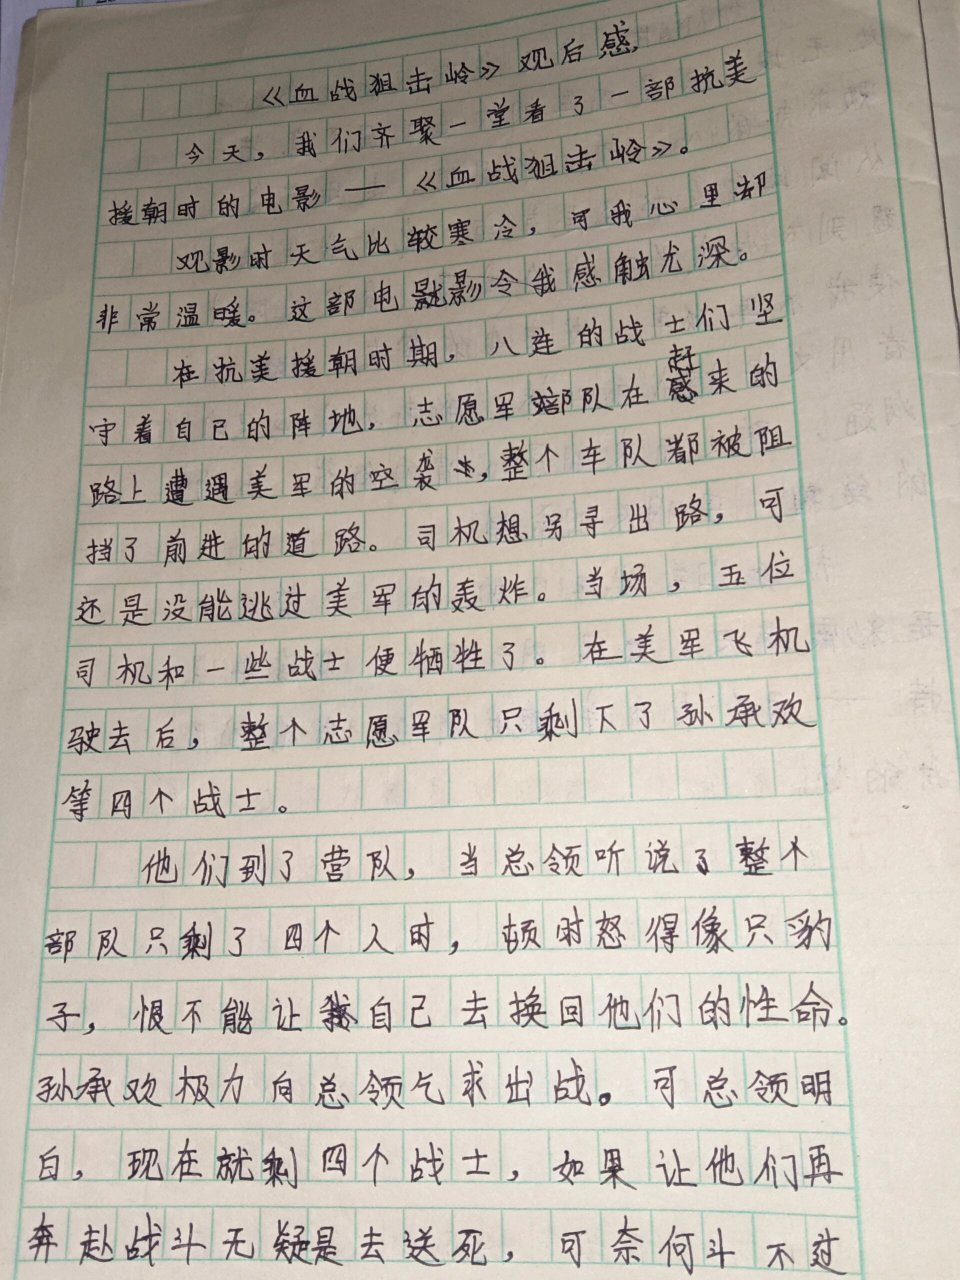 《血战狙击岭》观后感
今天，我们齐聚一堂看了一部抗美
援朝时的电影——《血战狙击岭》。
观影时天气比较寒冷，可我心里却
非常温暖。这部电影令我感触尤深。
在抗美援朝时期，八连的战士们坚
守着自己的阵地，志愿军部队在赶来的
路上遭遇美军的空袭，整个车队都被阻
挡了前进的道路。司机想另寻出路，可
还是没能逃过美军的轰炸。当场，五位
司机和一些战士便牺牲了。在美军飞机
驶去后，整个志愿军队只剩下了孙承欢
等四个战士。
他们到了营队，当总领听说了整个
部队只剩了四个人时，顿时怒得像只豹
子，恨不能让自己去换回他们的性命。
孙承欢极力向总领气求出战。可总领明
白，现在就剩四个战士，如果让他们再
奔赴战斗无疑是去送死，可奈何斗不过